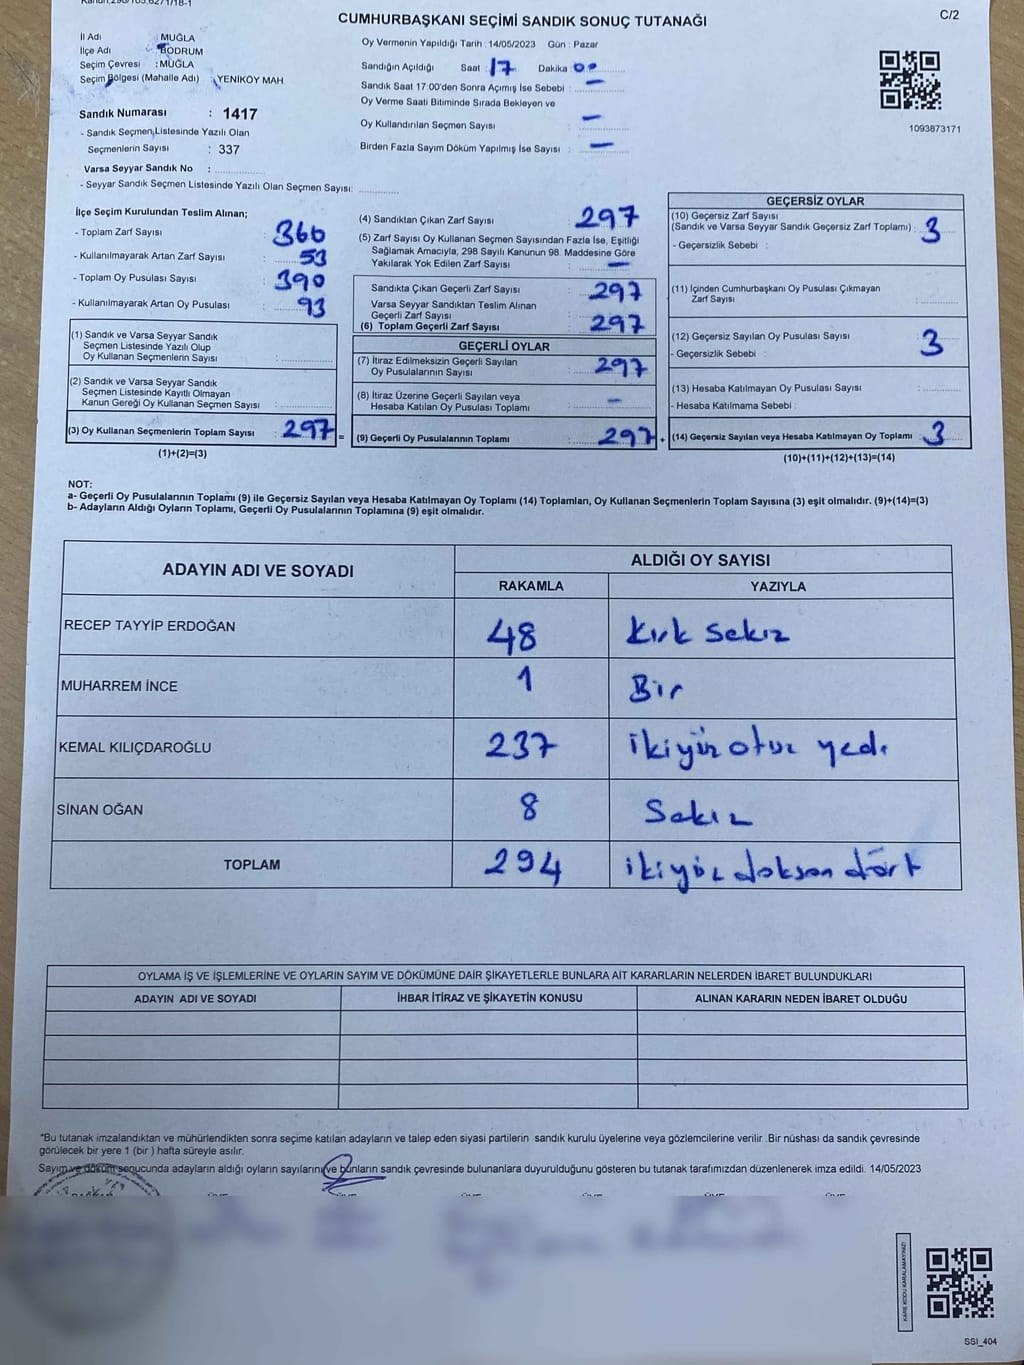 C/2
CUMHURBAŞKANI SEÇİMİ SANDIK SONUÇ TUTANAĞI
İl Adı : MUĞLA
İlçe Adı : BODRUM
Seçim Çevresi : MUĞLA
Seçim Bölgesi (Mahalle Adı) : YENİKÖY MAH.
Sandık Numarası : 1417
- Sandık Seçmen Listesinde Yazılı Olan
Seçmenlerin Sayısı : 337
Varsa Seyyar Sandık No :
- Seyyar Sandık Seçmen Listesinde Yazılı Olan Seçmen Sayısı:
Oy Vermenin Yapıldığı Tarih : 14/05/2023 Gün : Pazar
Sandığın Açıldığı Saat : 17 Dakika : 00
Sandık Saat 17:00'den Sonra Açımış İse Sebebi : —
Oy Verme Saati Bitiminde Sırada Bekleyen ve
Oy Kullandırılan Seçmen Sayısı : —
Birden Fazla Sayım Döküm Yapılmış İse Sayısı : —
1093873171
İlçe Seçim Kurulundan Teslim Alınan;
- Toplam Zarf Sayısı : 360
- Kullanılmayarak Artan Zarf Sayısı : 53
- Toplam Oy Pusulası Sayısı : 390
- Kullanılmayarak Artan Oy Pusulası : 93
(1) Sandık ve Varsa Seyyar Sandık
Seçmen Listesinde Yazılı Olup
Oy Kullanan Seçmenlerin Sayısı :
(2) Sandık ve Varsa Seyyar Sandık
Seçmen Listesinde Kayıtlı Olmayan
Kanun Gereği Oy Kullanan Seçmen Sayısı :
(3) Oy Kullanan Seçmenlerin Toplam Sayısı : 297 =
(1)+(2)=(3)
(4) Sandıktan Çıkan Zarf Sayısı : 297
(5) Zarf Sayısı Oy Kullanan Seçmen Sayısından Fazla İse, Eşitliği
Sağlamak Amacıyla; 298 Sayılı Kanunun 98. Maddesine Göre
Yakılarak Yok Edilen Zarf Sayısı : —
Sandıkta Çıkan Geçerli Zarf Sayısı : 297
Varsa Seyyar Sandıktan Teslim Alınan
Geçerli Zarf Sayısı :
(6) Toplam Geçerli Zarf Sayısı : 297
GEÇERLİ OYLAR
(7) İtiraz Edilmeksizin Geçerli Sayılan
Oy Pusulalarının Sayısı : 297
(8) İtiraz Üzerine Geçerli Sayılan veya
Hesaba Katılan Oy Pusulası Toplamı : —
(9) Geçerli Oy Pusulalarının Toplamı : 297 +
GEÇERSİZ OYLAR
(10) Geçersiz Zarf Sayısı
(Sandık ve Varsa Seyyar Sandık Geçersiz Zarf Toplamı) : 3
- Geçersizlik Sebebi :
(11) İçinden Cumhurbaşkanı Oy Pusulası Çıkmayan
Zarf Sayısı :
(12) Geçersiz Sayılan Oy Pusulası Sayısı : 3
- Geçersizlik Sebebi :
(13) Hesaba Katılmayan Oy Pusulası Sayısı :
- Hesaba Katılmama Sebebi :
(14) Geçersiz Sayılan veya Hesaba Katılmayan Oy Toplamı : 3
(10)+(11)+(12)+(13)=(14)
NOT:
a- Geçerli Oy Pusulalarının Toplamı (9) ile Geçersiz Sayılan veya Hesaba Katılmayan Oy Toplamı (14) Toplamları, Oy Kullanan Seçmenlerin Toplam Sayısına (3) eşit olmalıdır. (9)+(14)=(3)
b- Adayların Aldığı Oyların Toplamı, Geçerli Oy Pusulalarının Toplamına (9) eşit olmalıdır.
ADAYIN ADI VE SOYADI ALDIĞI OY SAYISI
RAKAMLA YAZIYLA
RECEP TAYYİP ERDOĞAN 48 Kırk sekiz
MUHARREM İNCE 1 Bir
KEMAL KILIÇDAROĞLU 237 ikiyüz otuz yedi
SİNAN OĞAN 8 Sekiz
TOPLAM 294 ikiyüz doksan dört
OYLAMA İŞ VE İŞLEMLERİNE VE OYLARIN SAYIM VE DÖKÜMÜNE DAİR ŞİKAYETLERLE BUNLARA AİT KARARLARIN NELERDEN İBARET BULUNDUKLARI
ADAYIN ADI VE SOYADI İHBAR İTİRAZ VE ŞİKAYETİN KONUSU ALINAN KARARIN NEDEN İBARET OLDUĞU
*Bu tutanak imzalandıktan ve mühürlendikten sonra seçime katılan adayların ve talep eden siyasi partilerin sandık kurulu üyelerine veya gözlemcilerine verilir .Bir nüshası da sandık çevresinde
görülecek bir yere 1 (bir ) hafta süreyle asılır.
Sayım ve döküm sonucunda adayların aldığı oyların sayılarını ve bunların sandık çevresinde bulunanlara duyurulduğunu gösteren bu tutanak tarafımızdan düzenlenerek imza edildi. 14/05/2023
KARE KODU KARALAMAYINIZ!
SSI_404